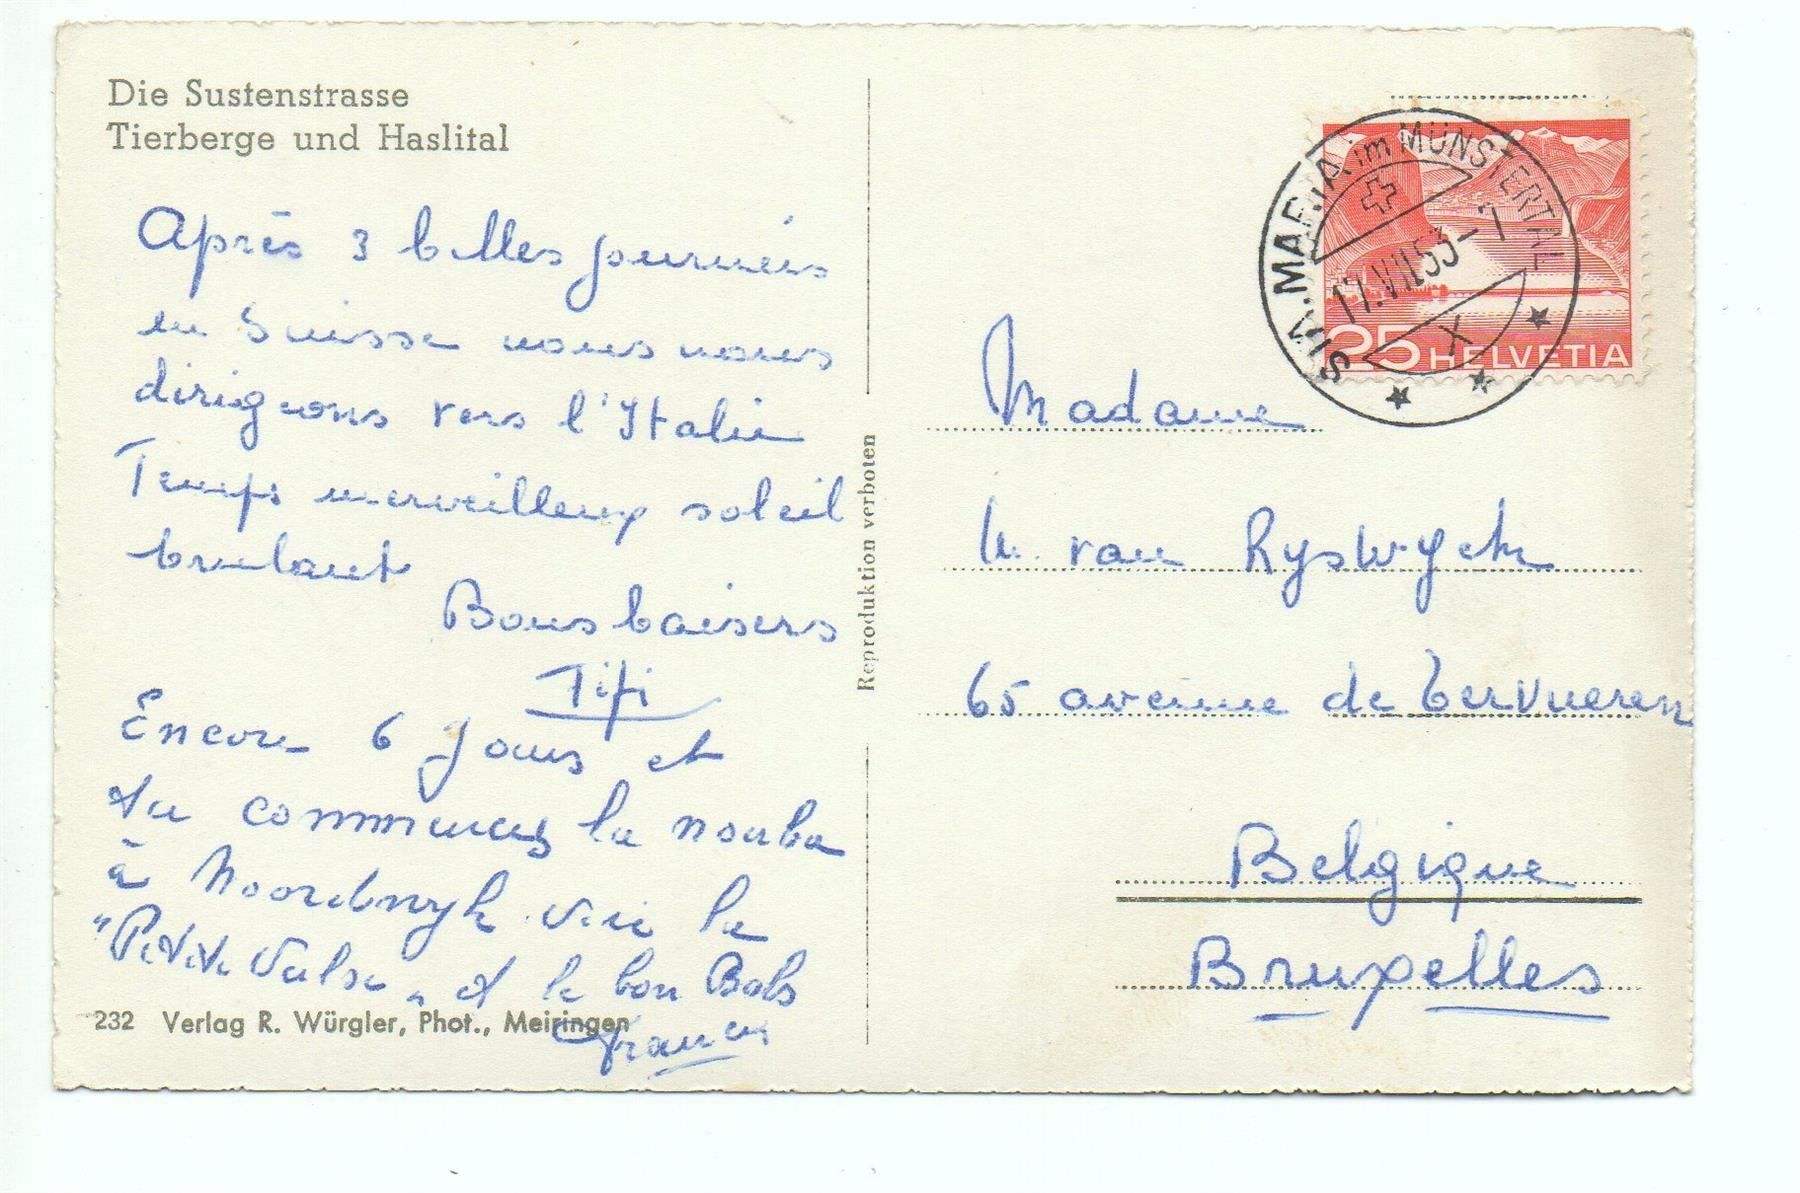 Die Sustenstrasse
Tierberge und Haslital
Après 3 belles journées
en Suisse nous nous
dirigeons vers l'Italie
Temps merveilleux soleil
brulant
Bons baisers
Fifi
Encore 6 jours et
tu commences la nouba
à Noordwyk vive la
"Petite Valse" et le bon Bols
232 Verlag R. Würgler, Phot., Meiringen
Reproduktion verboten
STA. MARIA im MÜNSTERTAL
17.VII.53-7
X
25 HELVETIA
Madame
van Ryswyck
65 avenue de Tervueren
Belgique
Bruxelles